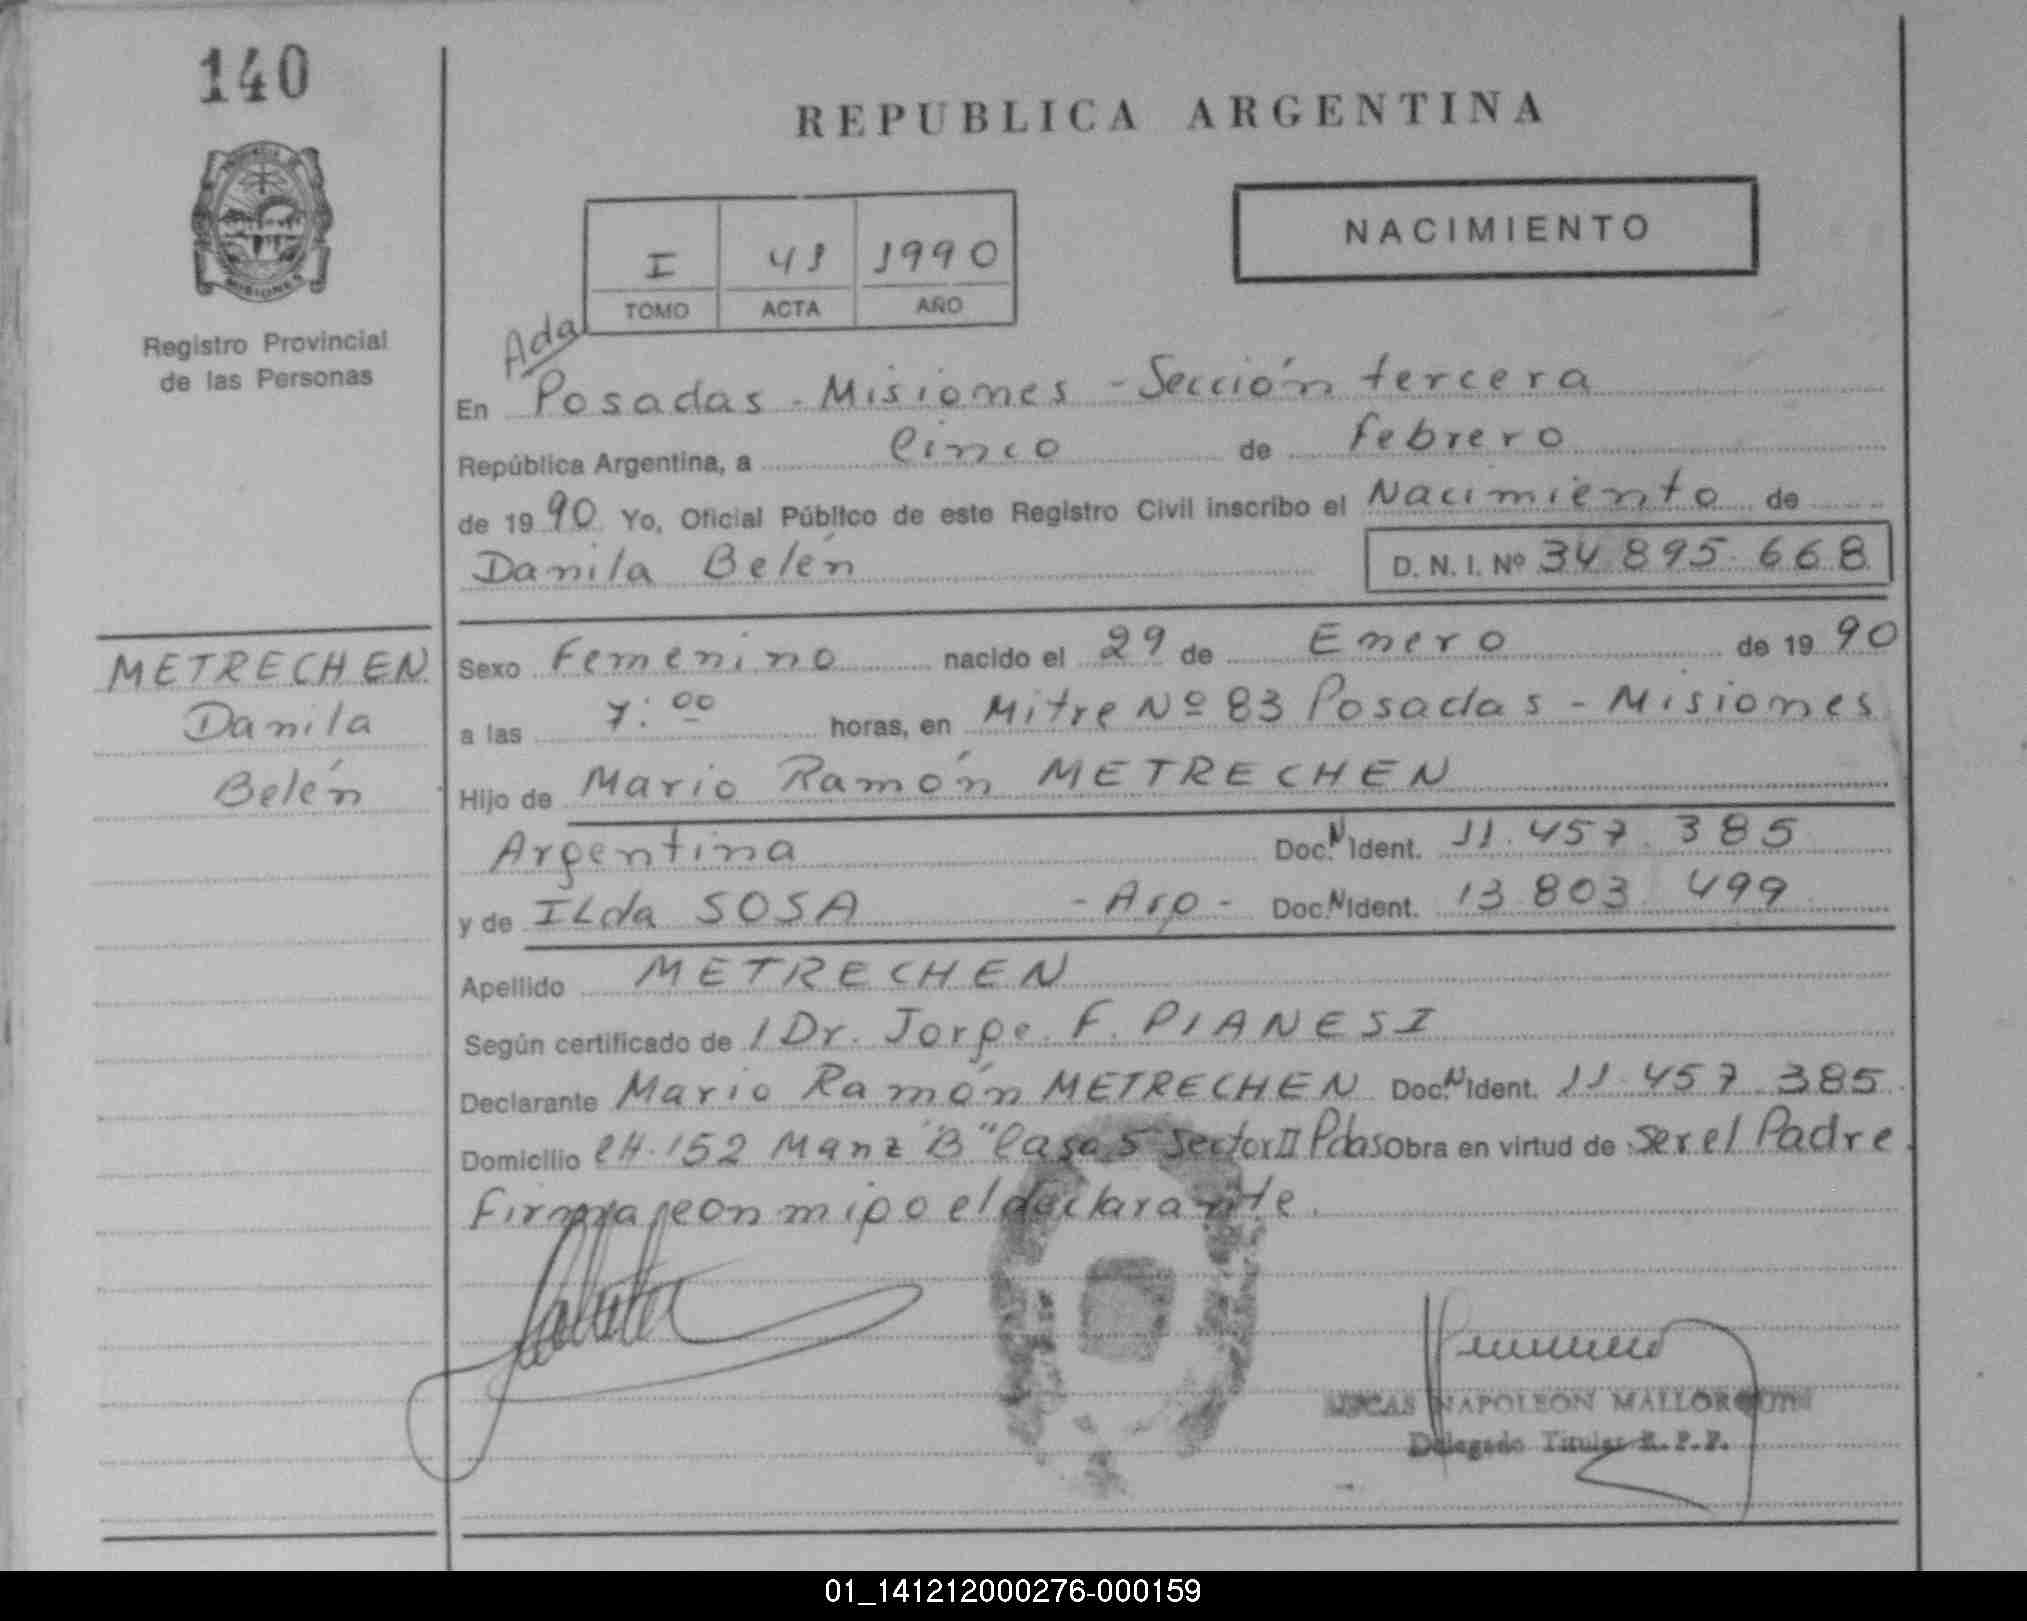 140
REPUBLICA ARGENTINA
NACIMIENTO
I 41 1990
TOMO ACTA AÑO
MISIONES
Registro Provincial
de las Personas
Ada
En Posadas - Misiones - Sección tercera
República Argentina, a Cinco de Febrero
de 1990 Yo, Oficial Público de este Registro Civil inscribo el Nacimiento de
Danila Belén D. N. I. Nº 34.895.668
METRECHEN
Danila
Belén
Sexo Femenino nacido el 29 de Enero de 1990
a las 7:00 horas, en Mitre Nº 83 Posadas - Misiones
Hijo de Mario Ramón METRECHEN
Argentina Doc. N Ident. 11.457.385
y de ILda SOSA - Arg - Doc. N Ident. 13.803.499
Apellido METRECHEN
Según certificado de / Dr. Jorge F. PIANESI
Declarante Mario Ramón METRECHEN Doc. N Ident. 11.457.385
Domicilio CH. 152 Manz "B" Casa 5 Sector II Pdas Obra en virtud de ser el Padre
Firma con migo el declarante.
LUCAS NAPOLEON MALLORQUIN
Delegado Titular R. P. P.
01_141212000276-000159